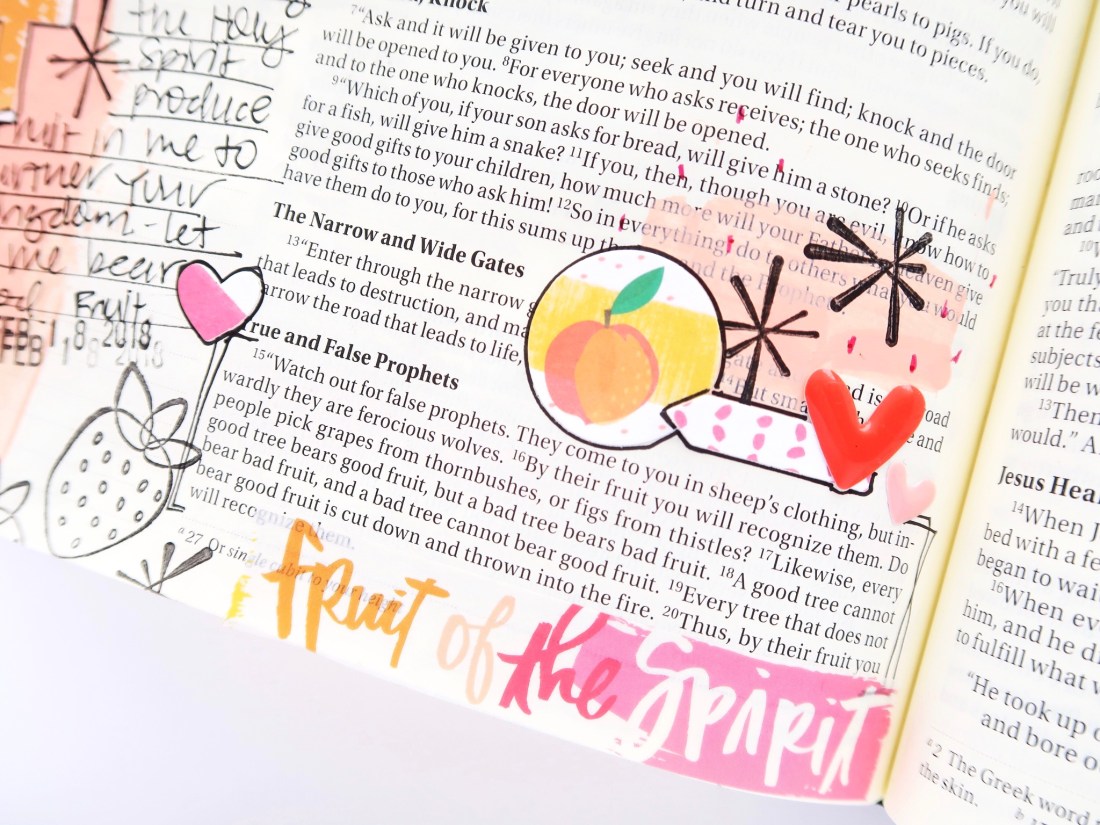 the Holy
Spirit
produce
fruit in me to
further your
kingdom - let
me bear
Fruit
FEB 18 2018
FEB 18 2018
pearls to pigs. If you do,
turn and tear you to pieces.
Knock
7“Ask and it will be given to you; seek and you will find; knock and the door
will be opened to you. 8For everyone who asks receives; the one who seeks finds;
and to the one who knocks, the door will be opened.
9“Which of you, if your son asks for bread, will give him a stone? 10Or if he asks
for a fish, will give him a snake? 11If you, then, though you are evil, know how to
give good gifts to your children, how much more will your Father in heaven give
good gifts to those who ask him! 12So in everything, do to others what you would
have them do to you, for this sums up and the Prophets
The Narrow and Wide Gates
13“Enter through the narrow road
that leads to destruction, and 14“But and
narrow the road that leads to life,
True and False Prophets
15“Watch out for false prophets. They come to you in sheep’s clothing, but in-
wardly they are ferocious wolves. 16By their fruit you will recognize them. Do
people pick grapes from thornbushes, or figs from thistles? 17Likewise, every
good tree bears good fruit, but a bad tree bears bad fruit. 18A good tree cannot
bear bad fruit, and a bad tree cannot bear good fruit. 19Every tree that does not
bear good fruit is cut down and thrown into the fire. 20Thus, by their fruit you
will recognize them.
a 27 Or single cubit to your height
fruit of the Spirit
“Truly
you th
at the fe
subjects
will be w
13Then
would.” A
Jesus Hea
14When J
bed with a fe
began to wait
16When ev
him, and he d
to fulfill what w
“He took up o
and bore o
a 2 The Greek word
the skin.